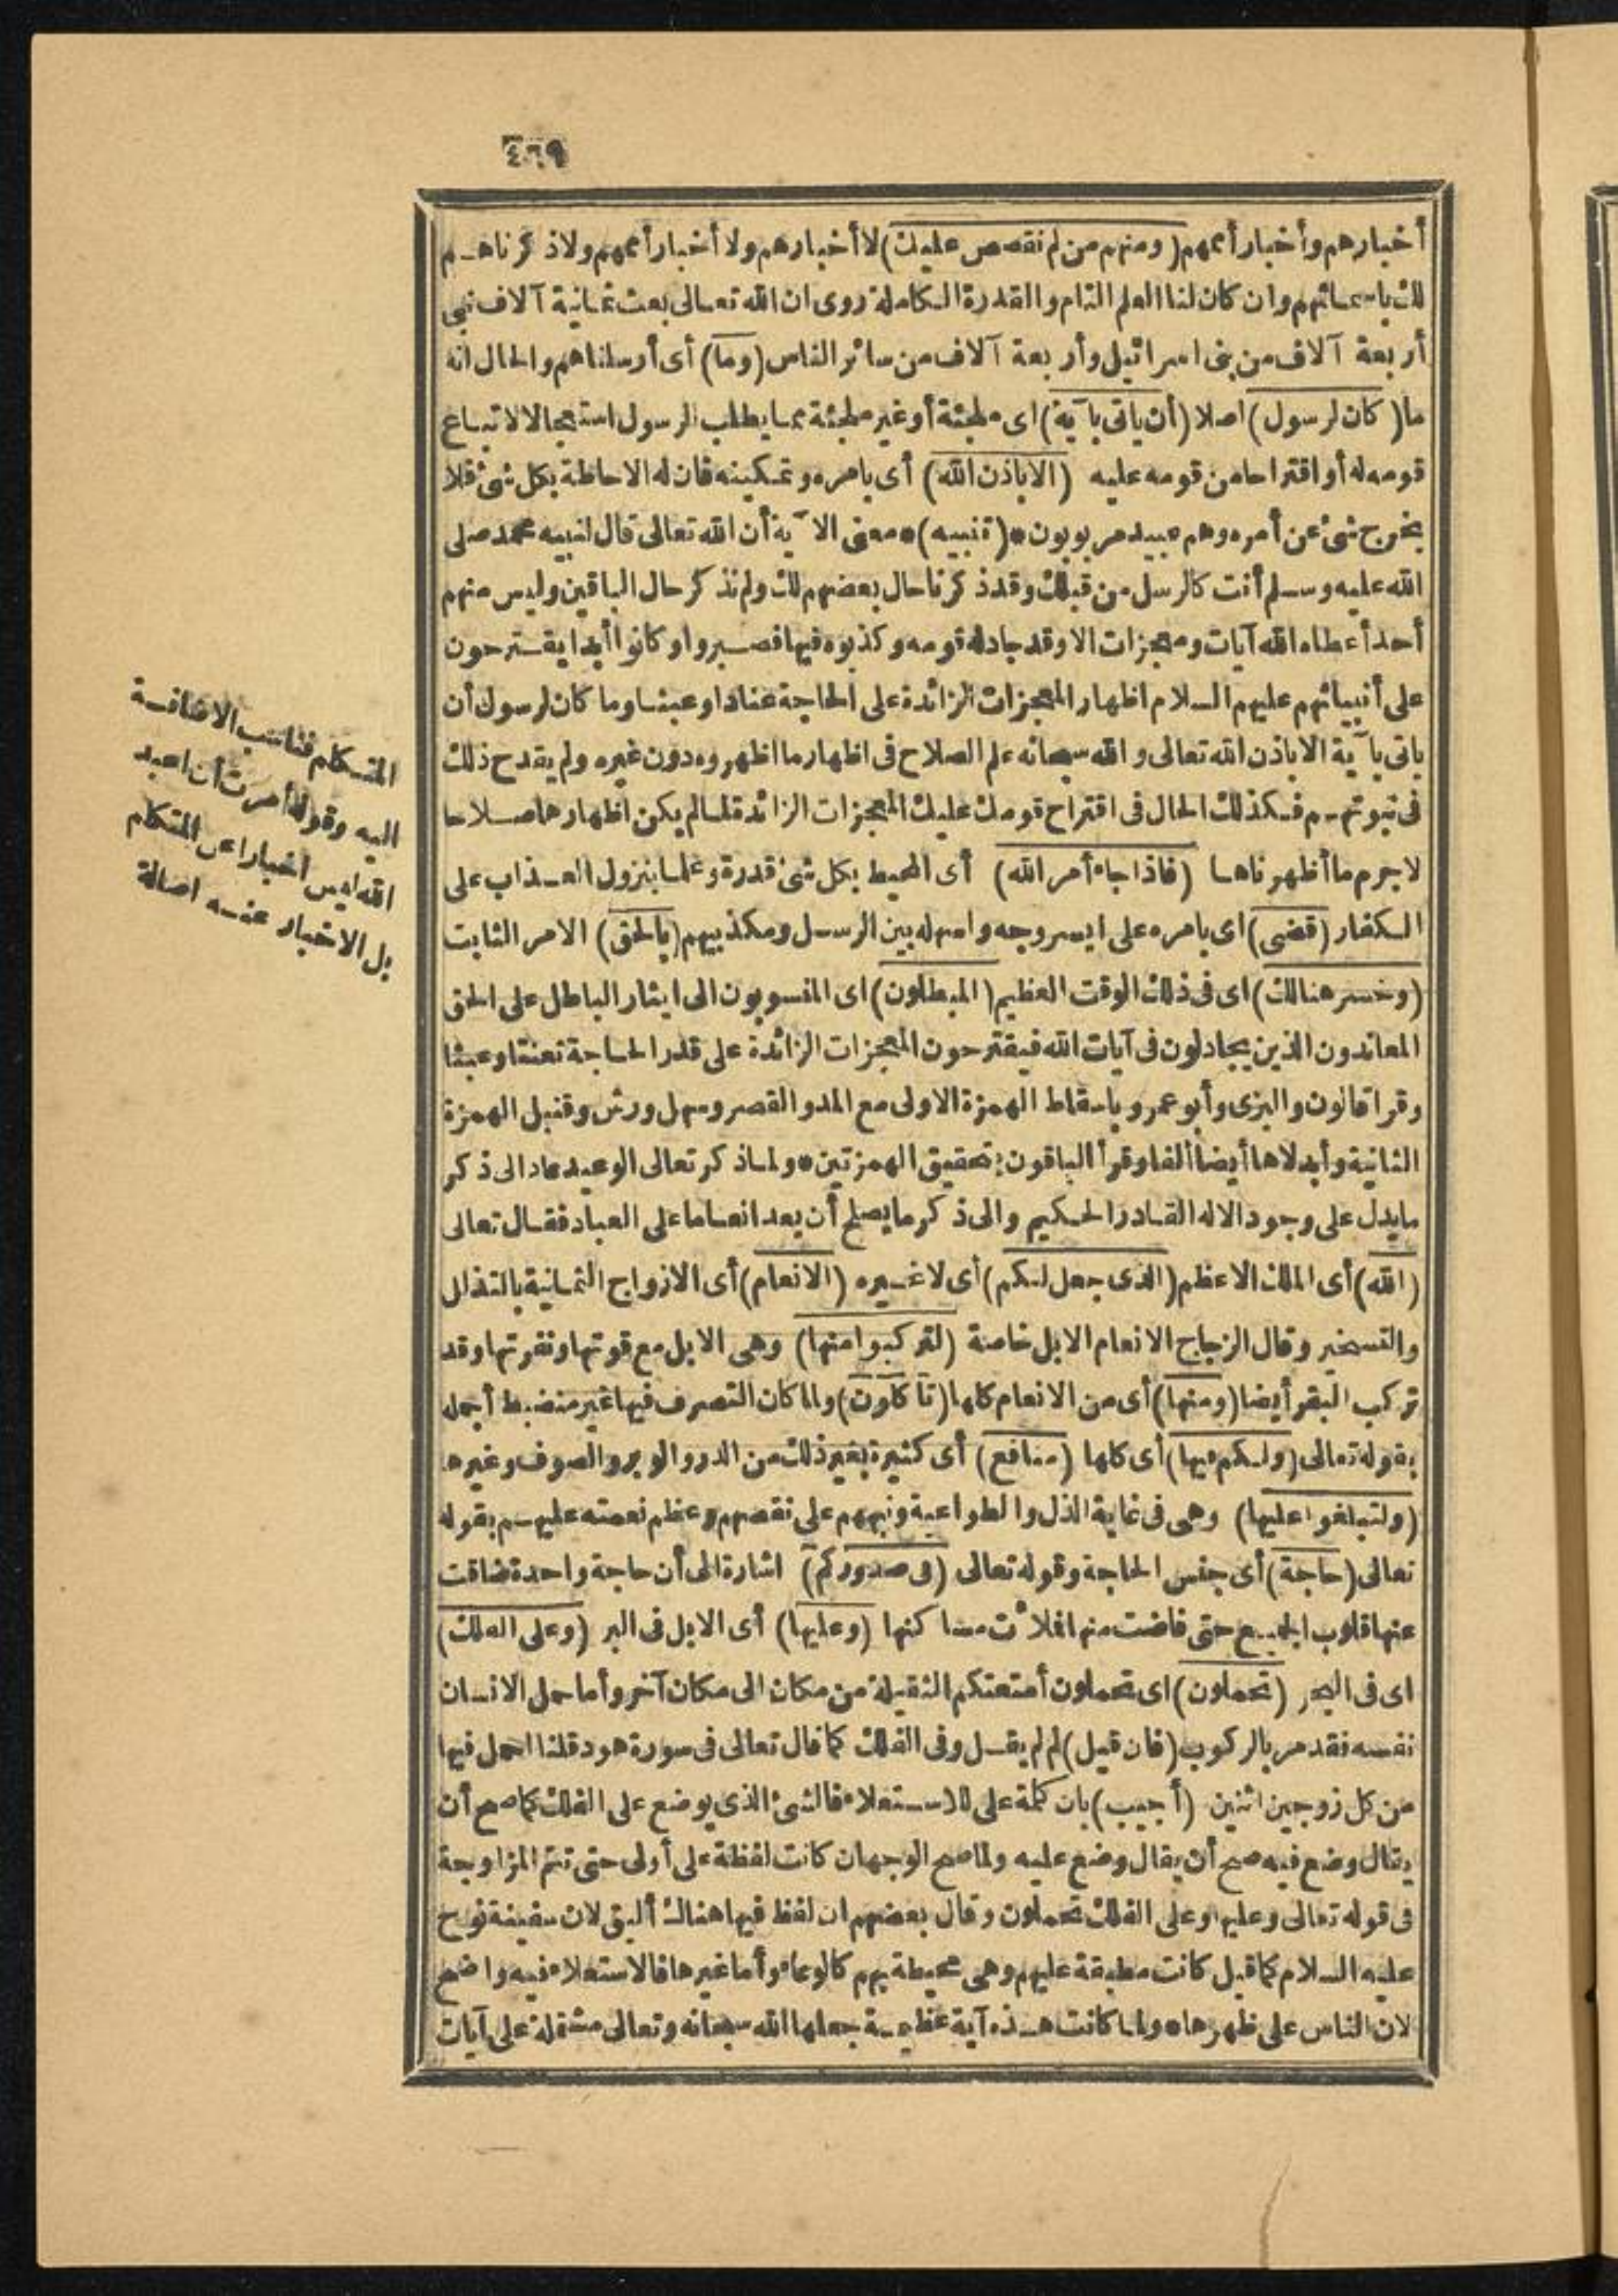 ٤٦٩
أخبارهم وأخبار أممهم (ومنهم من لم نقصص عليك) لا أخبارهم ولا أخبار أممهم ولا ذكرناهم
لك باسمائهم وان كان لنا العلم التام والقدرة الكاملة روى ان الله تعالى بعث ثمانية آلاف نبى
أربعة آلاف من بنى اسرائيل وأربعة آلاف من سائر الناس (وما) أى أرسلناهم والحال انه
ما (كان لرسول) اصلا (أن ياتى بآية) اى ملجئة أو غير ملجئة مما يطلب الرسول استعجالا لاتباع
قومه له أو اقتراحا من قومه عليه (الا باذن الله) أى بامره وتمكينه فان له الاحاطة بكل شئ فلا
يخرج شئ عن أمره وهم عبيد مربوبون * (تنبيه) * معنى الآية أن الله تعالى قال لنبيه محمد صلى
الله عليه وسلم أنت كالرسل من قبلك وقد ذكرنا حال بعضهم لك ولم نذكر حال الباقين وليس منهم
أحد أعطاه الله آيات ومعجزات الا وقد جادله قومه وكذبوه فيها فصبروا وكانوا أبدا يقترحون
على أنبيائهم عليهم السلام اظهار المعجزات الزائدة على الحاجة عنادا وعبثا وما كان لرسول أن
ياتى بآية الا باذن الله تعالى والله سبحانه علم الصلاح فى اظهار ما اظهروه دون غيره ولم يقدح ذلك
فى نبوتهم فكذلك الحال فى اقتراح قومك عليك المعجزات الزائدة لما لم يكن اظهارها صلاحا
لاجرم ما أظهرناها (فاذا جاء أمر الله) أى المحيط بكل شئ قدرة وعلما بنزول العذاب على
الكفار (قضى) اى بامره على ايسر وجه واسهله بين الرسل ومكذبيهم (بالحق) الامر الثابت
(وخسر هنالك) اى فى ذلك الوقت العظيم (المبطلون) اى المنسوبون الى ايثار الباطل على الحق
المعاندون الذين يجادلون فى آيات الله فيقترحون المعجزات الزائدة على قدر الحاجة تعنتا وعبثا
وقرا قالون والبزى وأبو عمرو باسقاط الهمزة الاولى مع المد والقصر وسهل ورش وقنبل الهمزة
الثانية وأبدلاها أيضا ألفا وقرأ الباقون بتحقيق الهمزتين * ولما ذكر تعالى الوعيد عاد الى ذكر
ما يدل على وجود الاله القادر الحكيم والى ذكر ما يصلح أن يعد انعاما على العباد فقال تعالى
(الله) أى الملك الاعظم (الذى جعل لكم) أى لا غيره (الانعام) أى الازواج الثمانية بالتذلل
والتسخير وقال الزجاج الانعام الابل خاصة (لتركبوا منها) وهى الابل مع قوتها ونفرتها وقد
تركب البقر أيضا (ومنها) أى من الانعام كلها (تأكلون) ولما كان التصرف فيها غير منضبط أجمله
بقوله تعالى (ولكم فيها) أى كلها (منافع) أى كثيرة بغير ذلك من الدر والوبر والصوف وغيرها
(ولتبلغوا عليها) وهى فى غاية الذل والطواعية ونبههم على نقصهم وعظم نعمته عليهم بقوله
تعالى (حاجة) أى جنس الحاجة وقوله تعالى (فى صدوركم) اشارة الى أن حاجة واحدة ضاقت
عنها قلوب الجميع حتى فاضت منها فملأت مساكنها (وعليها) أى الابل فى البر (وعلى الفلك)
اى فى البحر (تحملون) اى تحملون أمتعتكم الثقيلة من مكان الى مكان آخر وأما حمل الانسان
نفسه فقد مر بالركوب (فان قيل) لم لم يقل وفى الفلك كما قال تعالى فى سورة هود قلنا احمل فيها
من كل زوجين اثنين (أجيب) بان كلمة على للاستعلاء فالشئ الذى يوضع على الفلك كما صح أن
يقال وضع فيه صح أن يقال وضع عليه ولما صح الوجهان كانت لفظة على أولى حتى تتم المزاوجة
فى قوله تعالى وعليها وعلى الفلك تحملون وقال بعضهم ان لفظ فيها هناك أليق لان سفينة نوح
عليه السلام كما قيل كانت مطبقة عليهم وهى محيطة بهم كالوعاء وأما غيرها فالاستعلاء فيه واضح
لان الناس على ظهرها * ولما كانت هذه آية عظيمة جعلها الله سبحانه وتعالى مشتملة على آيات
المتكلم فناسب الاضافة
اليه وقوله أمرت أن اعبد
الله ليس اخبارا عن المتكلم
بل الاخبار عنه اصالة